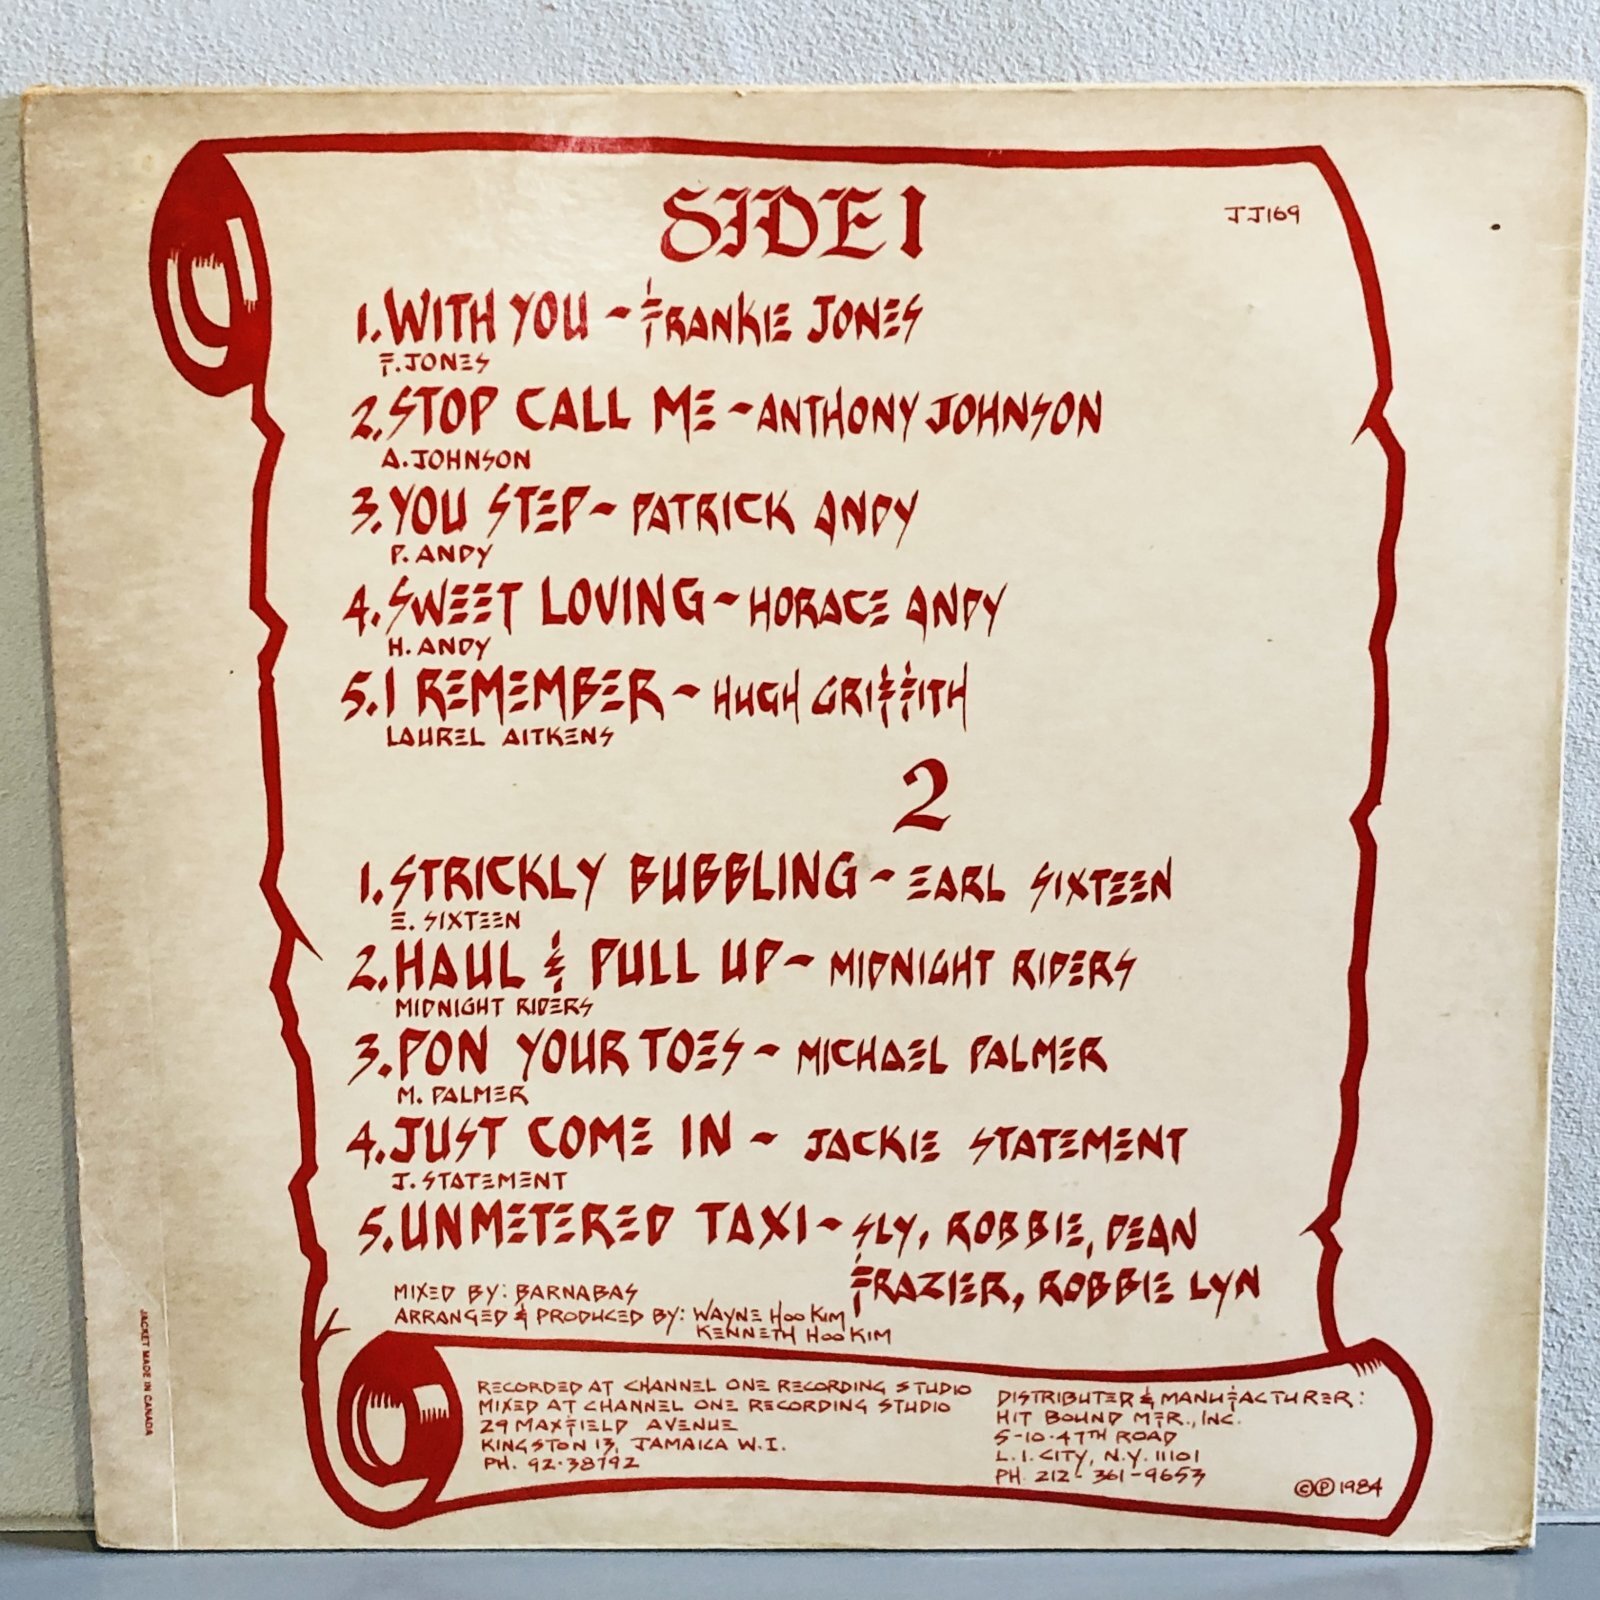 SIDE 1
JJ169
1. WITH YOU - FRANKIE JONES
F. JONES
2. STOP CALL ME - ANTHONY JOHNSON
A. JOHNSON
3. YOU STEP - PATRICK ANDY
P. ANDY
4. SWEET LOVING - HORACE ANDY
H. ANDY
5. I REMEMBER - HUGH GRIFFITH
LAUREL AITKENS
2
1. STRICKLY BUBBLING - EARL SIXTEEN
E. SIXTEEN
2. HAUL & PULL UP - MIDNIGHT RIDERS
MIDNIGHT RIDERS
3. PON YOUR TOES - MICHAEL PALMER
M. PALMER
4. JUST COME IN - JACKIE STATEMENT
J. STATEMENT
5. UNMETERED TAXI - SLY, ROBBIE, DEAN
FRAZIER, ROBBIE LYN
MIXED BY: BARNABAS
ARRANGED & PRODUCED BY: WAYNE HOO KIM
KENNETH HOO KIM
RECORDED AT CHANNEL ONE RECORDING STUDIO
MIXED AT CHANNEL ONE RECORDING STUDIO
29 MAXFIELD AVENUE
KINGSTON 13, JAMAICA W.I.
PH. 92-38792
DISTRIBUTED & MANUFACTURER:
HIT BOUND MFR., INC.
5-10-47TH ROAD
L.I. CITY, N.Y. 11101
PH. 212-361-9653
©℗ 1984
JACKET MADE IN CANADA